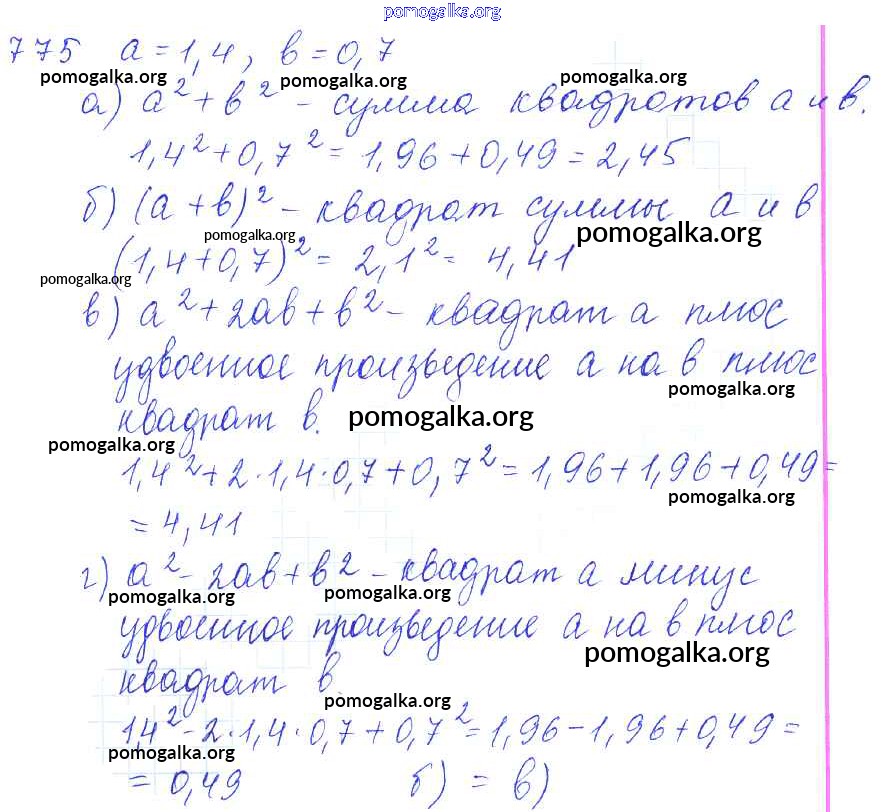 pomogalka.org
775 a = 1,4, в = 0,7
pomogalka.org pomogalka.org pomogalka.org
а) a² + в² - сумма квадратов а и в.
1,4² + 0,7² = 1,96 + 0,49 = 2,45
б) (а + в)² - квадрат суммы а и в
pomogalka.org pomogalka.org
(1,4 + 0,7)² = 2,1² = 4,41
pomogalka.org
в) а² + 2ав + в² - квадрат а плюс
удвоенное произведение а на в плюс
pomogalka.org
квадрат в.
pomogalka.org
pomogalka.org
1,4² + 2·1,4·0,7 + 0,7² = 1,96 + 1,96 + 0,49 =
pomogalka.org
= 4,41
г) а² - 2ав + в² - квадрат а минус
pomogalka.org pomogalka.org
удвоенное произведение а на в плюс
pomogalka.org
квадрат в
pomogalka.org
1,4² - 2·1,4·0,7 + 0,7² = 1,96 - 1,96 + 0,49 =
pomogalka.org
= 0,49 б) = в)